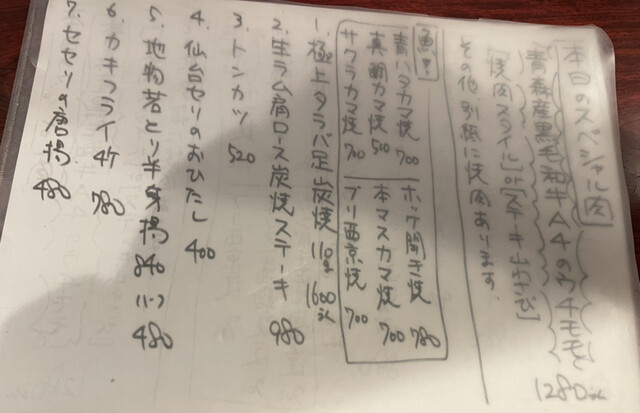 本日のスペシャル肉
青森産黒毛和牛A4のウチモモ 1280円
その他、別紙に焼肉あります。
魚!
青ハタカマ焼 700
真鯛カマ焼 500
サクラカマ焼 700
ホッケ開き焼 780
本マスカマ焼 700
ブリ西京焼 700
1. 極上タラバ足炭焼 110g 1600円
2. 生ラム肩ロース炭焼ステーキ 980
3. トンカツ 520
4. 仙台セリのおひたし 400
5. 地物若とり半身揚 840 ハーフ 480
6. カキフライ 4ケ 780
7. セセリの唐揚 480